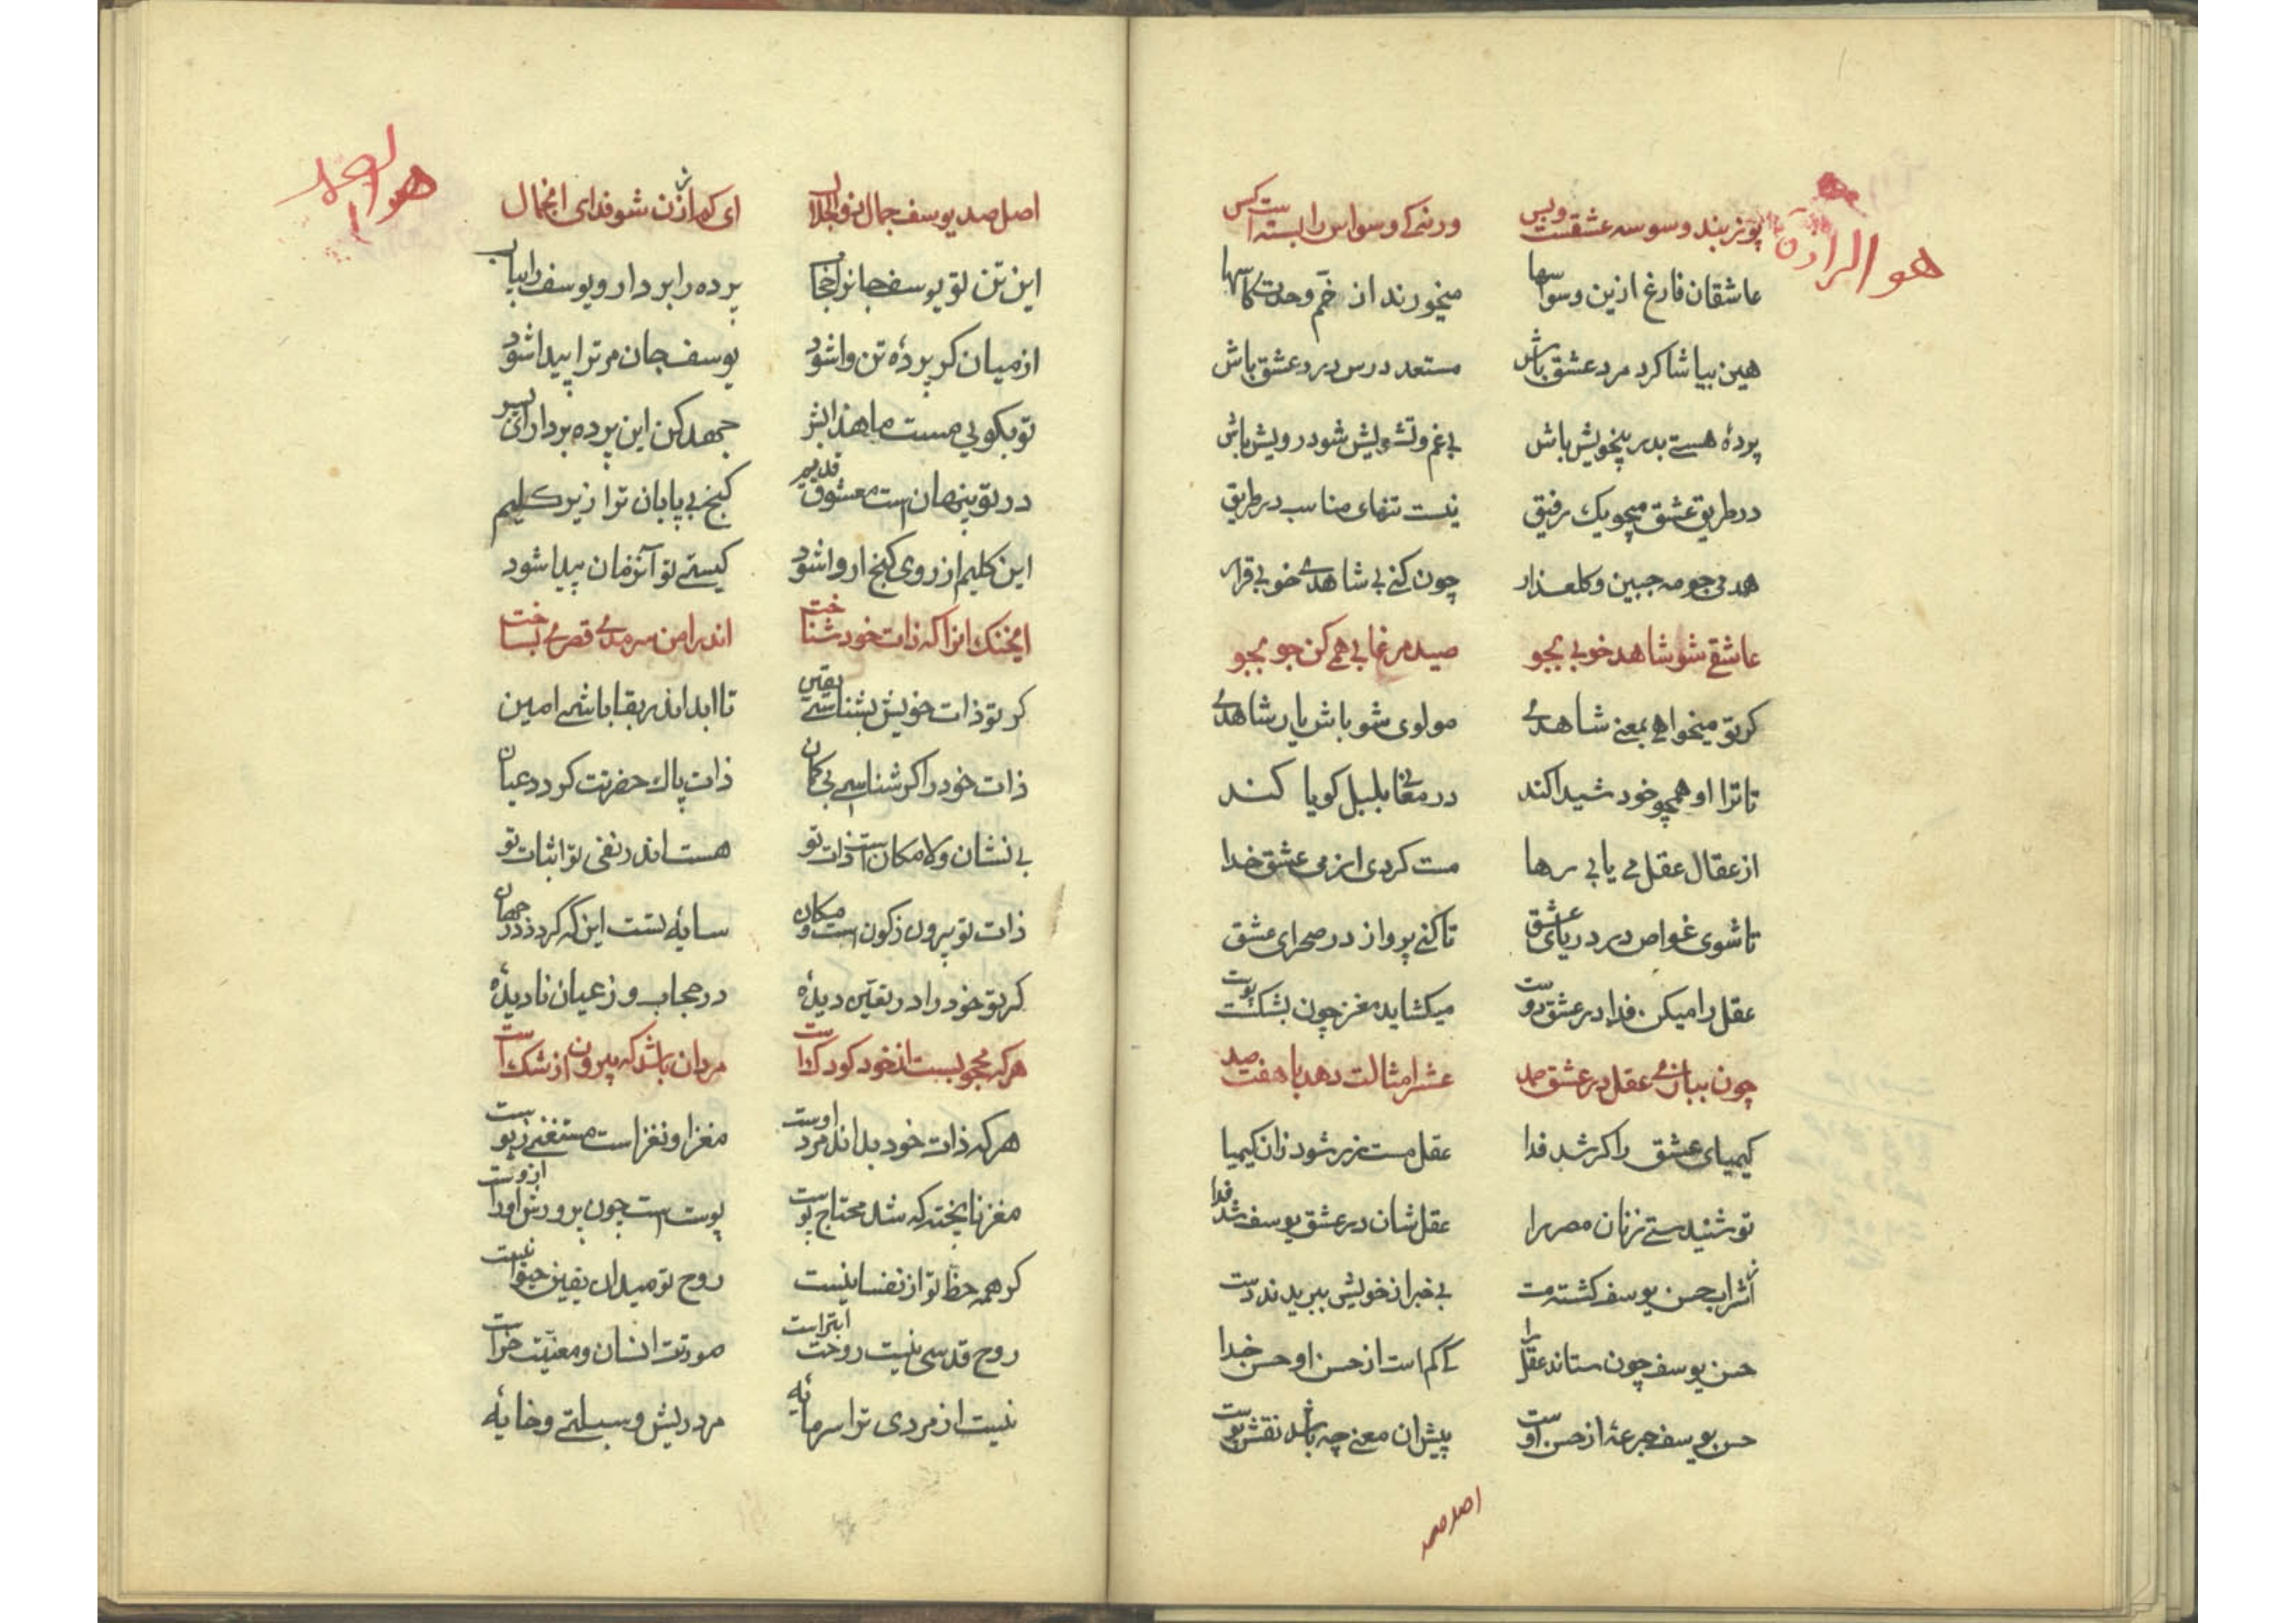 هو الرازق
پوزبند وسوسه عشقست وبس ورنه کی وسواس را بسته است کس
عاشقان فارغ ازین وسواسها میخورند از خمّ وحدت کاسها
هین بیا شاکرد مرد عشق باش مستعد درس درد عشق باش
پردهٔ هستی بدر بیخویش باش بی غم و تشویش شو درویش باش
در طریق عشق میجو یک رفیق نیست تنهای مناسب در طریق
همدمی جو مه جبین و کلعذار چون کنی بی شاهدی خوبی قرار
عاشقی شو شاهد خوبی بجو صید مرغابی همی کن جو بجو
کر تو میخواهی بمعنی شاهدی مولوی شو باش یار شاهدی
تا ترا او همچو خود شیدا کند در معانی بلبل کویا کند
از عقال عقل می یابی رها مست کردی از می عشق خدا
تا شوی غواص در دریای عشق تا کنی پرواز در صحرای عشق
عقل را میکن فدا در عشق دوست میکشاید مغز چون بشکست پوست
چون ببازی عقل در عشق صمد عشر امثالت دهد یا هفت صد
کیمیای عشق را کر شد فدا عقل مست زر شود زان کیمیا
تو شنیدستی زنان مصر را عقلشان در عشق یوسف شد فدا
از شراب حسن یوسف کشته مست بی خبر از خویش ببریدند دست
حسن یوسف چون ستاند عقل را کی کم است از حسن او حسن خدا
حسن یوسف جرعهٔ از حسن اوست پیش آن معنی چه باشد نقش پوست
اصل صد
هو احد
اصل صد یوسف جمال ذوالجلال ای کم از زن شو فدای انجمال
این تن تو یوسف جانرا حجاب پرده را بردار و یوسف را بیاب
از میان کر پردهٔ تن وا شود یوسف جان مر ترا پیدا شود
تو بکویی مست ما هذا بشر جهد کن این پرده بردار ای پسر
در تو پنهان است معشوق قدیم کنج بی پایان ترا زیر کلیم
این کلیم از روی کنج ار وا شود کیستی تو آنزمان پیدا شود
ایخنک انرا که ذات خود شناخت اندر امن سرمدی قصری بساخت
کر تو ذات خویش بشناسی یقین تا ابد اندر بقا باشی امین
ذات خود را کر شناسی بی کمان ذات پاک حضرتت کردد عیان
بی نشان و لامکان است ذات تو هست اندر نفی تو اثبات تو
ذات تو بیرون ز کون است و مکان سایهٔ تست این که کردد در جهان
کر تو خود را در یقین دیدهٔ در حجاب و ز عیان نادیدهٔ
هر که محجوبست از خود کودکست مرد آن باشد که بیرون از شک است
هر که ذات خود بداند مرد اوست مغز او نغز است مستغنی ز پوست
مغز ناپخته که شد محتاج پوست پوست است چون پرورش او را ازوست
کو همه حظ تو از نفسانیست روح تو میدان یقین حیوانیست
روح قدسی نیست روحت ابتر است صورتت انسان و معنیت خر است
نیست از مردی ترا سرمایهٔ مرد ریش و سبلتی و خایهٔ